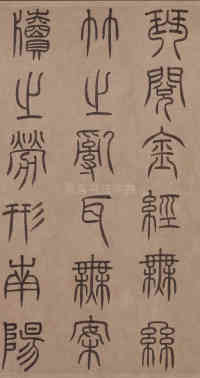 琴閱金經無絲
竹之亂耳無案
牘之勞形南陽